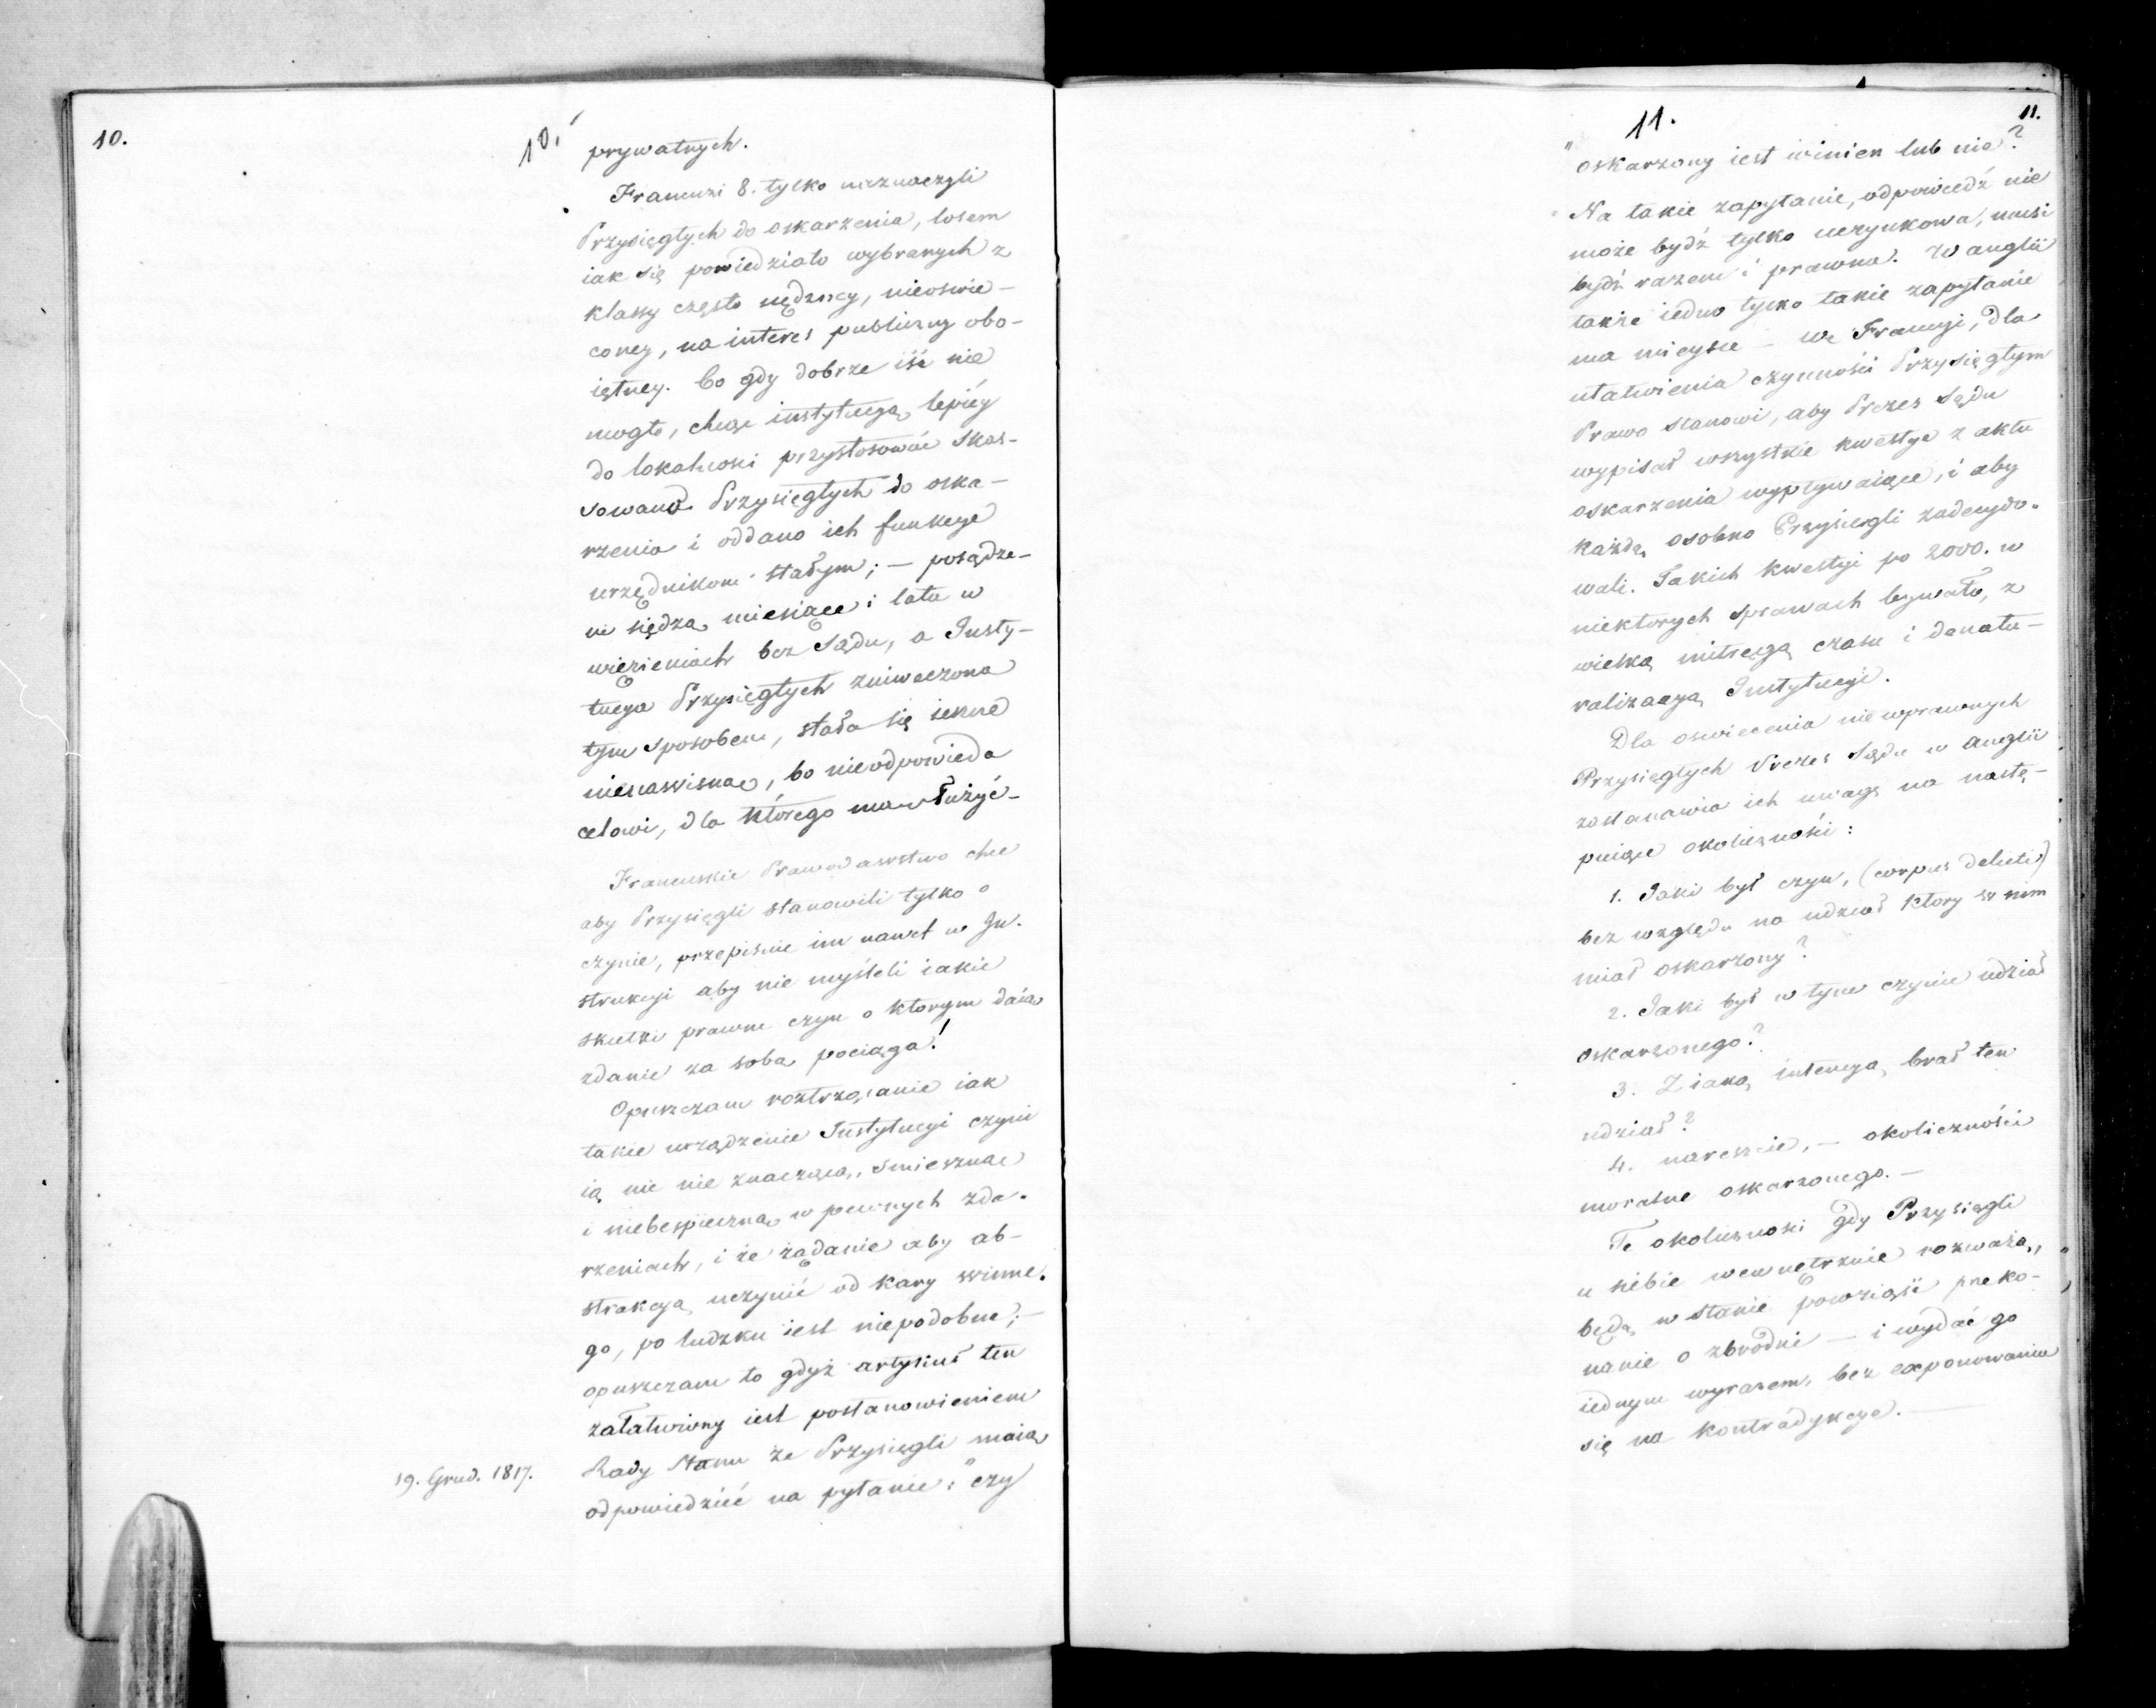 10.
10.
prywatnych.
Francuzi 8. tylko naznaczyli
Przysięgłych do oskarżenia, losem
iak się powiedziało wybranych z
klassy często nędzney, nieoswie-
coney, na interes publiczny obo-
iętney. Co gdy dobrze iść nie
mogło, chcąc instytucyą lepiéy
do lokalnosci przystosować skas-
sowano Przysięgłych do oska-
rzenia i oddano ich funkcye
urzędnikom stałym; — posądze-
ni siędzą miesiące i lata w
więzieniach bez Sądu, a Insty-
tucya Przysięgłych zniweczona
tym sposobem, stała się
nienawisną, bo nieodpowieda
celowi, dla którego ma służyć —
Francuskie Prawodawstwo chce
aby Przysięgli stanowili tylko o
czynie, przepisuie im nawet w In-
strukcyi aby nie myśleli iakie
skutki prawne czyn o ktorym daią
zdanie za sobą pociąga!
Opuszczam roztrząsanie iak
takie urządzenie Instytucyi czyni
ią nic nie znaczącą, smieszną
i niebespieczną w pewnych zda-
rzeniach, i że żądanie aby ab-
strakcyą uczynić od kary winne-
go, po ludzku iest niepodobne; —
opuszczam to gdyż artykuł ten
załatwiony iest postanowieniem
19. Grud. 1817.
Rady Stanu że Przysięgli maią
odpowiedzieć na pytanie: "czy
11.
11.
"oskarżony iest winien lub nie?
Na takie zapytanie, odpowiedź nie
może bydź tylko uczynkowa, musi
bydź razem i prawna. W anglii
także iedno tylko takie zapytanie
ma mieysce — We Francyi, dla
ułatwienia czynności Przysięgłym
Prawo stanowi, aby Prezes Sądu
wypisał wszystkie kwestye z aktu
oskarzenia wypływaiące, i aby
każdą osobno Przysięgli zadecydo-
wali. Takich kwestyi po 2000. w
niektorych sprawach bywało, z
wielką mitręgą czasu i denatu-
ralizacyą Instytucyi.
Dla oswiecenia niewprawnych
Przysięgłych Prezes Sądu w Anglii
zastanawia ich uwagę na nastę-
puiące okoliczności:
1. Jaki był czyn, (corpus delicti)
bez względu na udział ktory w nim
miał oskarzony?
2. Jaki był w tym czynie udział
oskarzonego?
3. Z iaką intencyą brał ten
udział?
4. nareszcie, — okoliczności
moralne oskarzonego. —
Te okoliczności gdy Przysięgli
u siebie wewnętrznie rozważą,
będą w stanie powziąść przeko-
nanie o zbrodni — i wydać go
iednym wyrazem, bez exponowania
się na kontradykcye. —